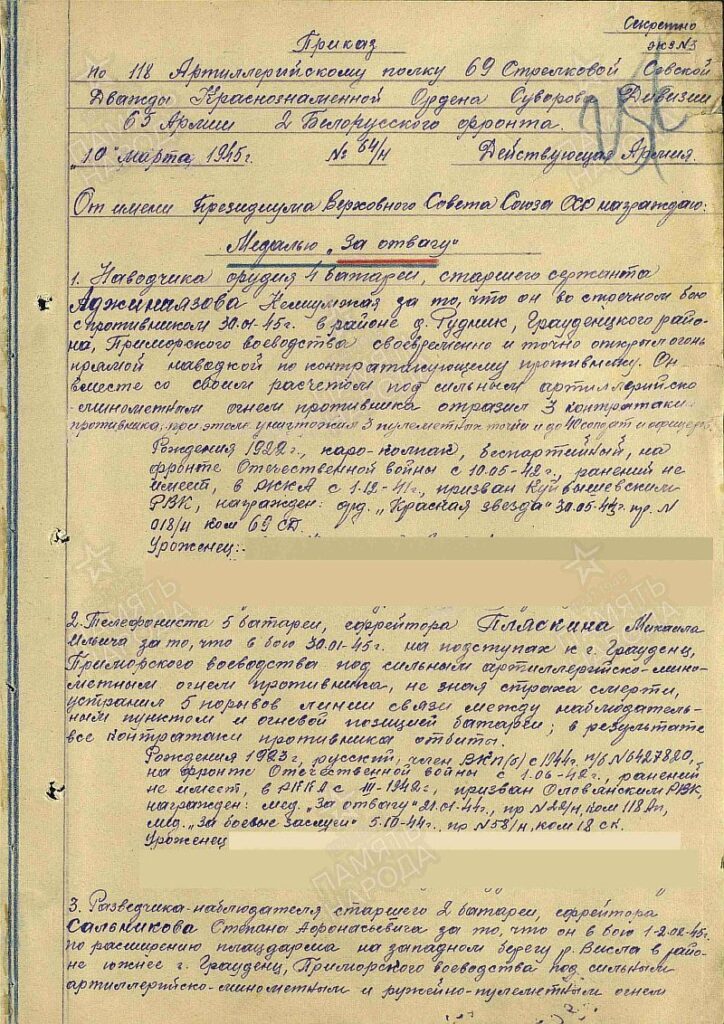 Секретно
экз №3
Приказ
по 118 Артиллерийскому полку 69 Стрелковой Севской
Дважды Краснознаменной Ордена Суворова Дивизии
65 Армии 2 Белорусского фронта.
"10" марта 1945г. № 64/н Действующая Армия.
От имени Президиума Верховного Совета Союза ССР награждаю:
Медалью „За отвагу"
1. Наводчика орудия 4 батареи, старшего сержанта
Аджиниязова за то, что он во встречном бою
с противником 30.01-45г. в районе д. Рудник, Грауденцкого райо-
на, Приморского воеводства своевременно и точно открыл огонь
прямой наводкой по контратакующему противнику. Он
вместе со своим расчетом под сильным артиллерийско
-минометным огнем противника отразил 3 контратаки
противника, при этом уничтожил 3 пулеметные точки и до 40 солдат и офицеров
Рождения 1922г., каро-колпак, беспартийный, на
фронте Отечественной войны с 10.05-42г., ранений не
имеет, в РККА с 1.12-41г., призван Куйбышевским
РВК, награжден: орд. „Красная звезда" 30.05-43г. пр. №
018/н ком 69 СД.
Уроженец:
2. Телефониста 5 батареи, ефрейтора Пляскина Михаила
Ильича за то, что в бою 30.01-45г. на подступах к г. Грауденц,
Приморского воеводства под сильным артиллерийско-мино-
метным огнем противника, не зная страха смерти,
устранил 5 порывов линии связи между наблюдатель-
ным пунктом и огневой позицией батареи; в результате
все контратаки противника отбиты.
Рождения 1923г., русский, член ВКП(б) с 1944г. п/б №6427820,
на фронте Отечественной войны с 1.06-42г., ранений
не имеет, в РККА с III-1942г., призван Оловянским РВК,
награжден: мед. „За отвагу" 21.01-44г., пр №22/н, ком 118 Ап,
мед. „За боевые заслуги" 5.10-44г., пр №58/н, ком 18 ск.
Уроженец
3. Разведчика-наблюдателя старшего 2 батареи, ефрейтора
Сальникова Степана Афонасьевича за то, что он в бою 1-2.02-45г.
по расширению плацдарма на западном берегу р. Висла в райо-
не южнее г. Грауденц, Приморского воеводства под сильным
артиллерийско-минометным и ружейно-пулеметным огнем
ПАМЯТЬ
НАРОДА